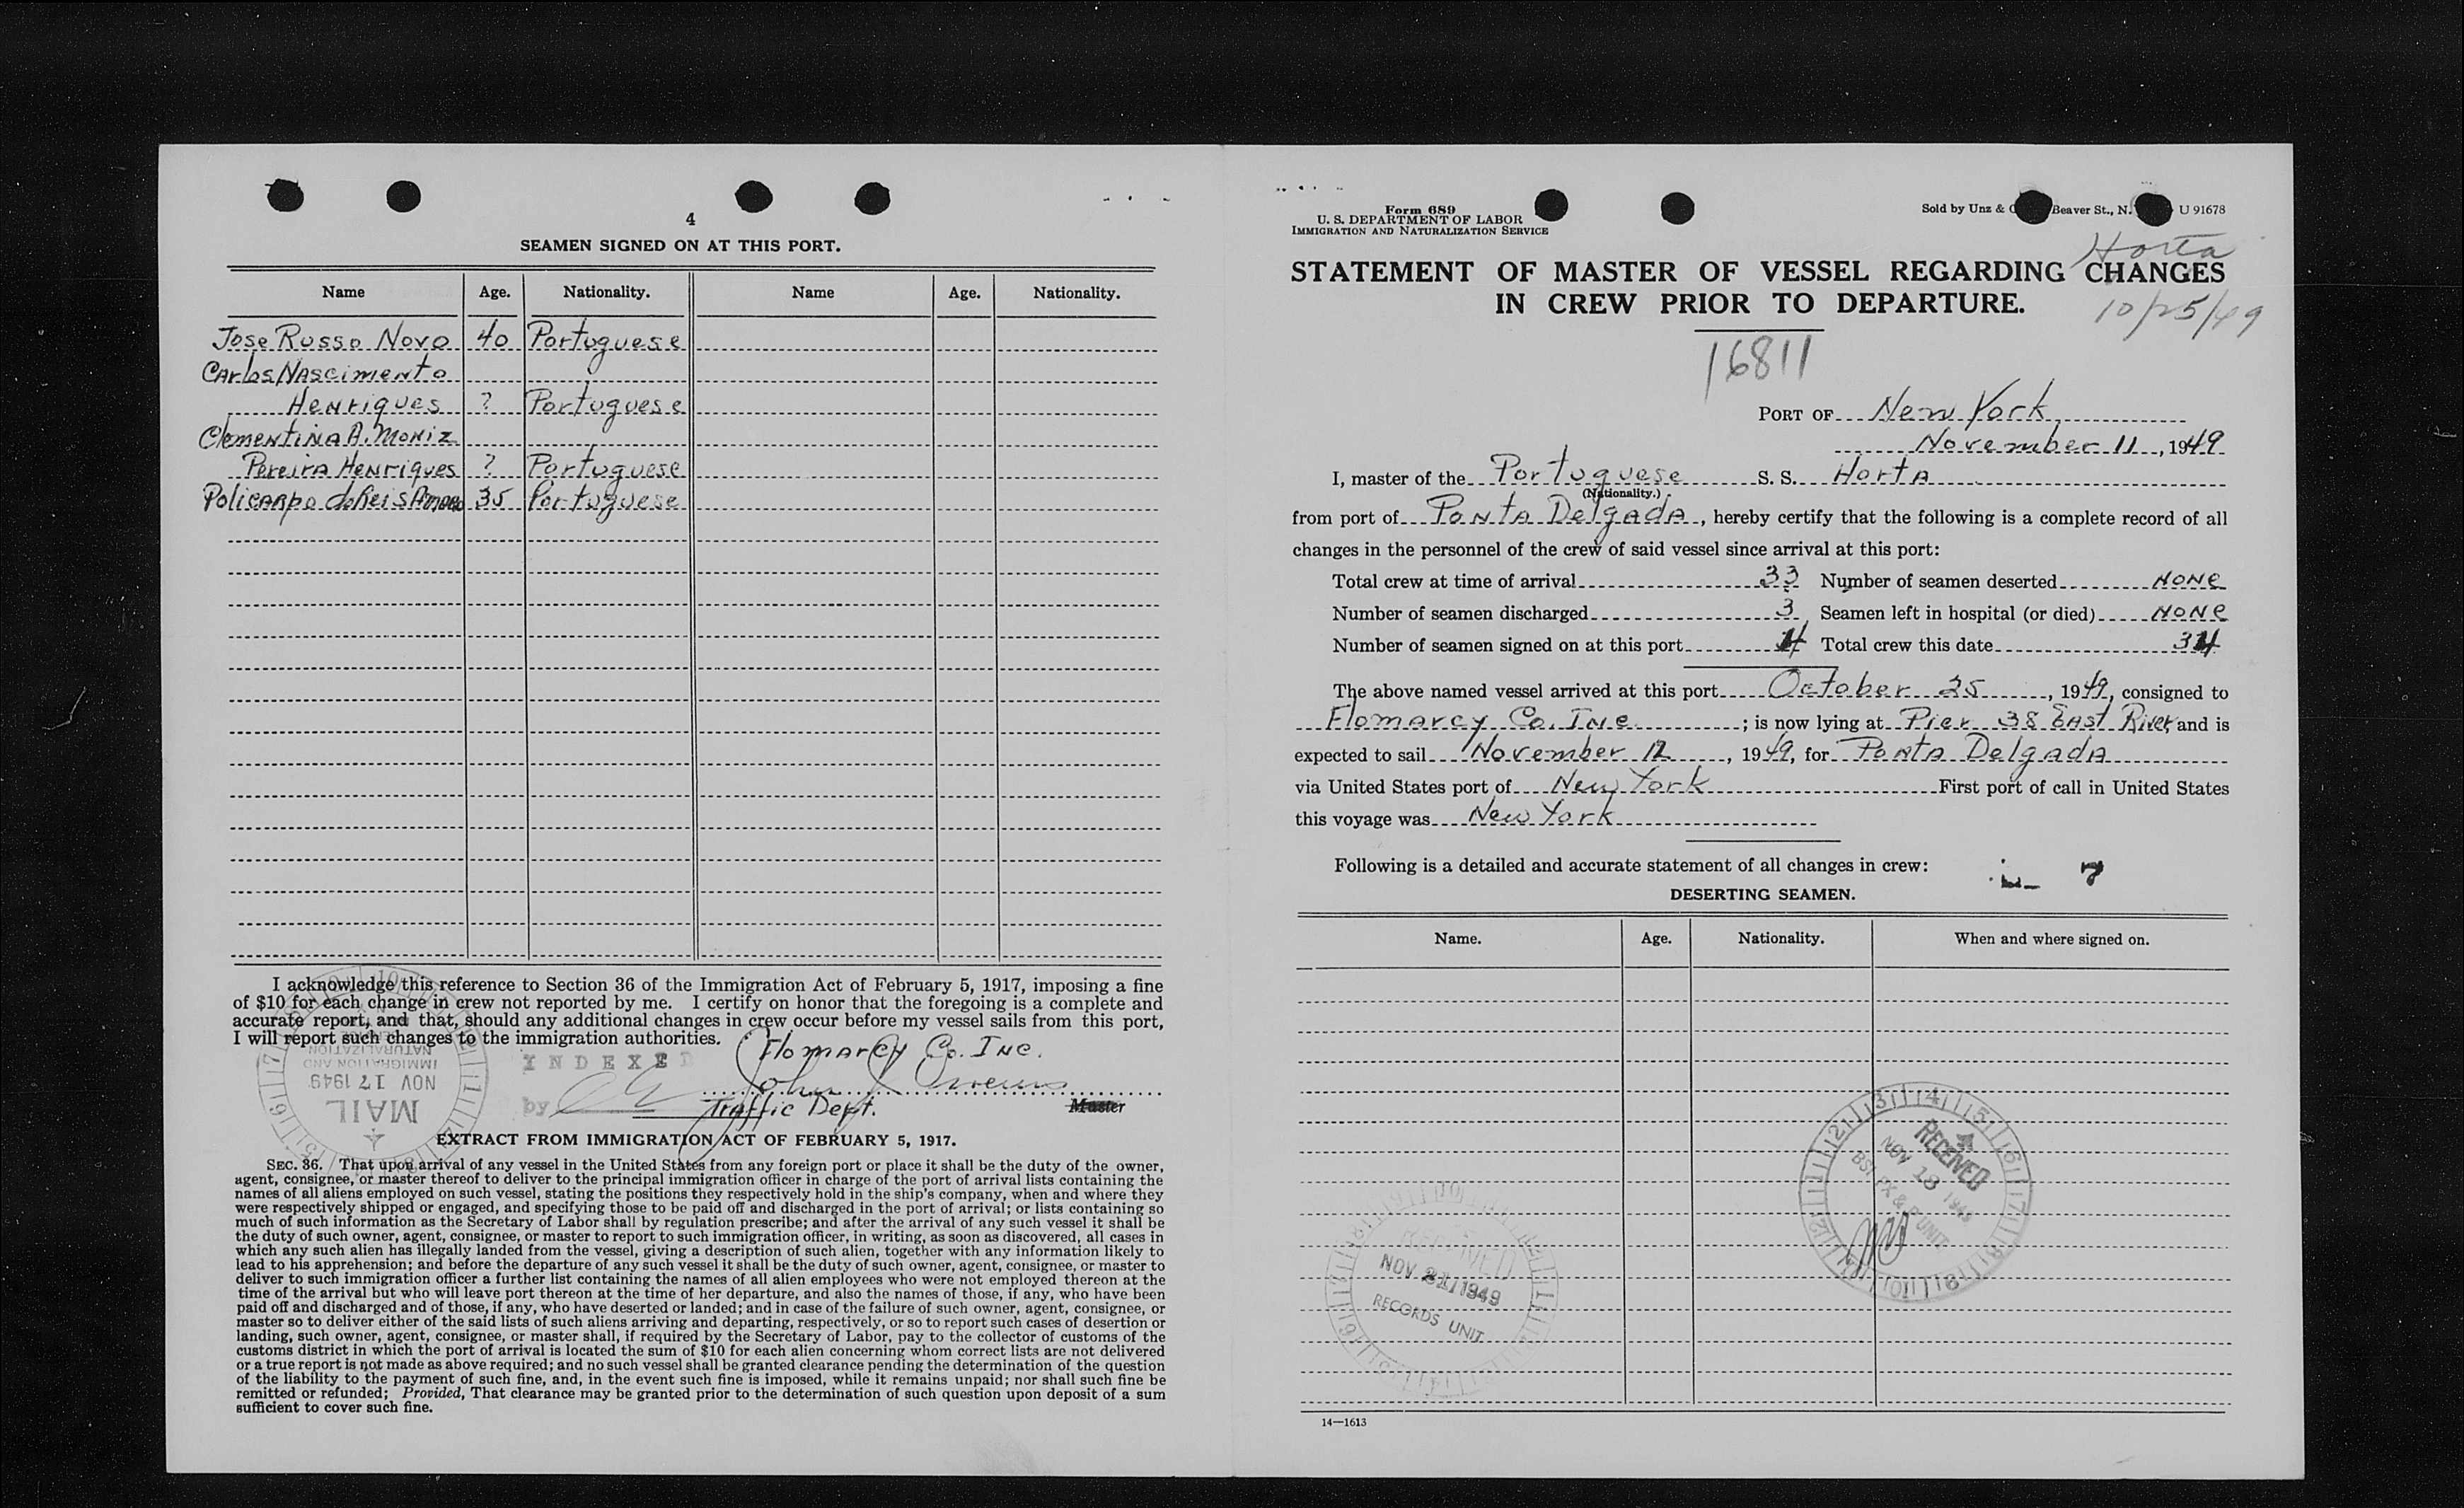 4
SEAMEN SIGNED ON AT THIS PORT.
Name Age. Nationality. Name Age. Nationality.
Jose Russo Novo 40 Portuguese
Carlos Nascimento
Henriques ? Portuguese
Clementina A. Moniz
Pereira Henriques ? Portuguese
Policarpo do Reis Amaro 35 Portuguese
I acknowledge this reference to Section 36 of the Immigration Act of February 5, 1917, imposing a fine
of $10 for each change in crew not reported by me. I certify on honor that the foregoing is a complete and
accurate report, and that, should any additional changes in crew occur before my vessel sails from this port,
I will report such changes to the immigration authorities.
Flomarcy Co. Inc.
INDEXED
by
John J. Owens
Traffic Dept. Master
IMMIGRATION AND
NATURALIZATION
NOV 17 1949
MAIL
EXTRACT FROM IMMIGRATION ACT OF FEBRUARY 5, 1917.
SEC. 36. That upon arrival of any vessel in the United States from any foreign port or place it shall be the duty of the owner,
agent, consignee, or master thereof to deliver to the principal immigration officer in charge of the port of arrival lists containing the
names of all aliens employed on such vessel, stating the positions they respectively hold in the ship's company, when and where they
were respectively shipped or engaged, and specifying those to be paid off and discharged in the port of arrival; or lists containing so
much of such information as the Secretary of Labor shall by regulation prescribe; and after the arrival of any such vessel it shall be
the duty of such owner, agent, consignee, or master to report to such immigration officer, in writing, as soon as discovered, all cases in
which any such alien has illegally landed from the vessel, giving a description of such alien, together with any information likely to
lead to his apprehension; and before the departure of any such vessel it shall be the duty of such owner, agent, consignee, or master to
deliver to such immigration officer a further list containing the names of all alien employees who were not employed thereon at the
time of the arrival but who will leave port thereon at the time of her departure, and also the names of those, if any, who have been
paid off and discharged and of those, if any, who have deserted or landed; and in case of the failure of such owner, agent, consignee, or
master so to deliver either of the said lists of such aliens arriving and departing, respectively, or so to report such cases of desertion or
landing, such owner, agent, consignee, or master shall, if required by the Secretary of Labor, pay to the collector of customs of the
customs district in which the port of arrival is located the sum of $10 for each alien concerning whom correct lists are not delivered
or a true report is not made as above required; and no such vessel shall be granted clearance pending the determination of the question
of the liability to the payment of such fine, and, in the event such fine is imposed, while it remains unpaid; nor shall such fine be
remitted or refunded; Provided, That clearance may be granted prior to the determination of such question upon deposit of a sum
sufficient to cover such fine.
Form 689
U. S. DEPARTMENT OF LABOR
IMMIGRATION AND NATURALIZATION SERVICE
Sold by Unz & Beaver St., N. U 91678
Horta
STATEMENT OF MASTER OF VESSEL REGARDING CHANGES
IN CREW PRIOR TO DEPARTURE.
10/25/49
16811
PORT OF New York
November 11, 1949
I, master of the Portuguese S. S. Horta
(Nationality.)
from port of Ponta Delgada, hereby certify that the following is a complete record of all
changes in the personnel of the crew of said vessel since arrival at this port:
Total crew at time of arrival 33 Number of seamen deserted None
Number of seamen discharged 3 Seamen left in hospital (or died) None
Number of seamen signed on at this port 4 Total crew this date 34
The above named vessel arrived at this port October 25, 1949, consigned to
Flomarcy Co. Inc.; is now lying at Pier 38 East River, and is
expected to sail November 12, 1949, for Ponta Delgada
via United States port of New York First port of call in United States
this voyage was New York
Following is a detailed and accurate statement of all changes in crew:
7
DESERTING SEAMEN.
Name. Age. Nationality. When and where signed on.
RECEIVED
NOV 18 1949
UNIT
RECEIVED
NOV 21 1949
RECORDS UNIT
14—1613